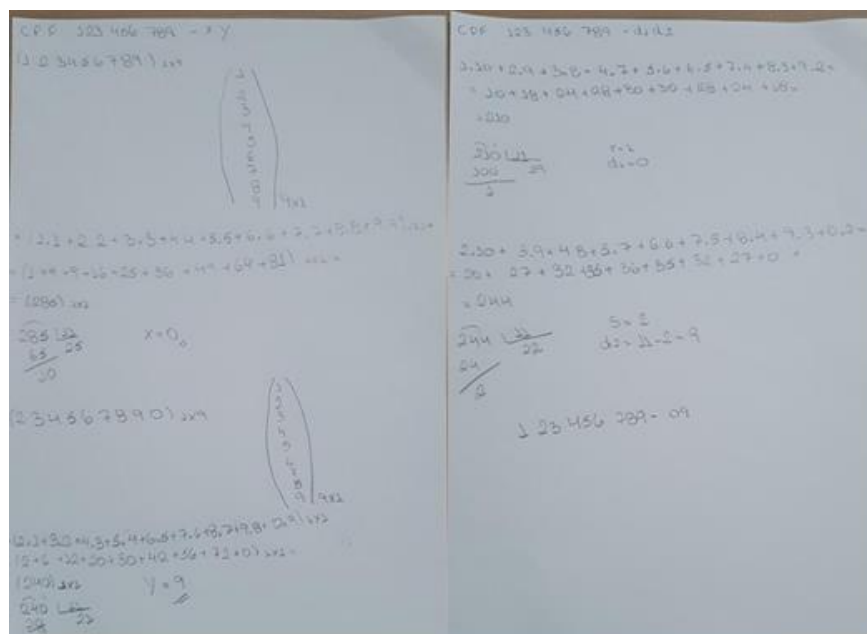 CPF 123 456 789 - X Y
(1 2 3 4 5 6 7 8 9) 1x9
1
2
3
4
5
6
7
8
9
9x1
= (1.1 + 2.2 + 3.3 + 4.4 + 5.5 + 6.6 + 7.7 + 8.8 + 9.9) 1x1 =
= (1 + 4 + 9 + 16 + 25 + 36 + 49 + 64 + 81) 1x1 =
= (285) 1x1
285 11
65 25
10
X = 0
(2 3 4 5 6 7 8 9 0) 1x9
1
2
3
4
5
6
7
8
9
9x1
(2.1 + 3.2 + 4.3 + 5.4 + 6.5 + 7.6 + 8.7 + 9.8 + 0.9) 1x1
(2 + 6 + 12 + 20 + 30 + 42 + 56 + 72 + 0) 1x1 =
(240) 1x1
Y = 9
240
CPF 123 456 789 - d1d2
1.10 + 2.9 + 3.8 + 4.7 + 5.6 + 6.5 + 7.4 + 8.3 + 9.2 =
= 10 + 18 + 24 + 28 + 30 + 30 + 28 + 24 + 18 =
= 210
210 11
19
1
d1 = 0
2.10 + 3.9 + 4.8 + 5.7 + 6.6 + 7.5 + 8.4 + 9.3 + 0.2 =
= 20 + 27 + 32 + 35 + 36 + 35 + 32 + 27 + 0 =
= 244
244 11
24 22
2
S = 2
d2 = 11 - 2 = 9
1 23 456 789 - 09